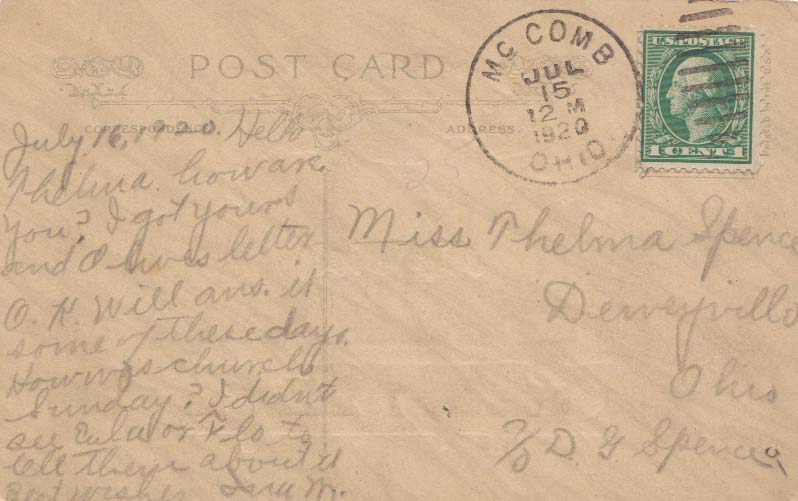 POST CARD
CORRESPONDENCE.
ADDRESS.
MC COMB
JUL
15
12 M
1920
OHIO
U.S. POSTAGE
1 CENT 1
July 1920. Hello
Thelma. how are
you? I got yours
and Olives letter
O. K. Will ans. it
some of these days.
How was church
Sunday? I didn't
see Eula or Flo to
tell them about it
Best wishes
Miss Thelma Spence
Deweyville
Ohio
c/o D. G. Spence